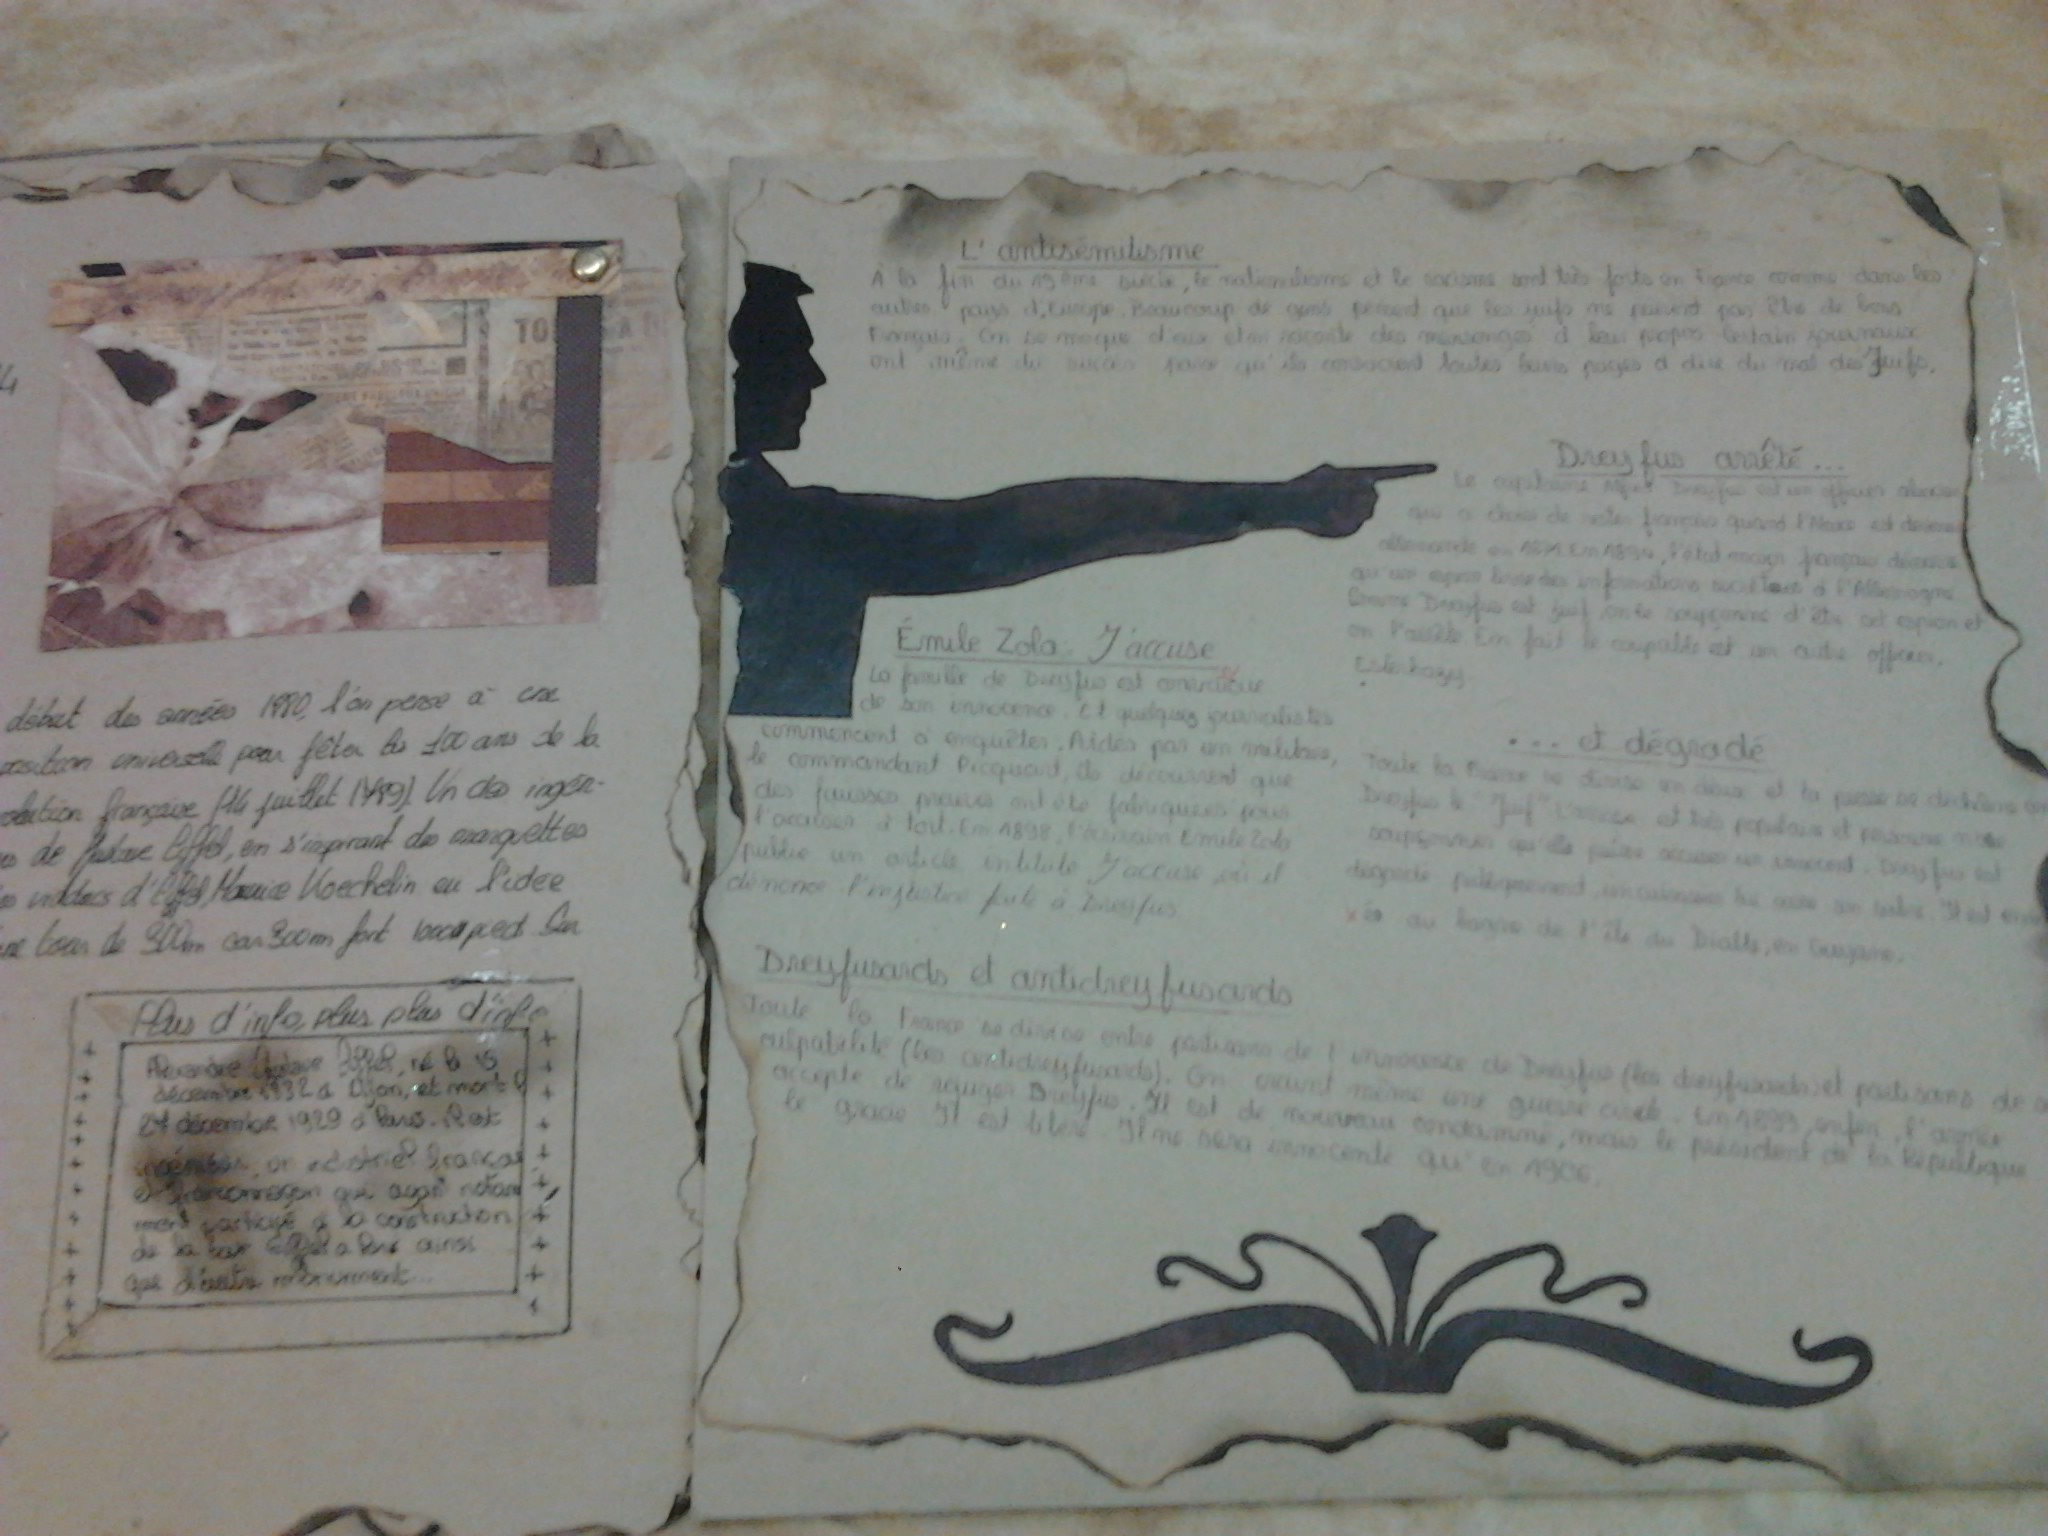 4
TO
début des années 1980, l'on pense à une
universelle pour fêter les 100 ans de la
française (14 juillet 1789). Un des ingén-
de Gustave Eiffel, en s'inspirant des maquettes
d'Eiffel, Maurice Koechelin eu l'idée
tour de 300m car 300m font 1000 pied Sur
Plus d'info, plus plus d'info
Alexandre Gustave Eiffel, né le 15
décembre 1932 à Dijon, et mort l
27 décembre 1929 à Paris. Il est
ingénieur, un industriel français
et francmaçon qui ayant notam
ment participé à la construction
de la tour Eiffel a Paris ainsi
que d'autre monument...
L'antisémitisme
À la fin du 19ème siècle, le nationalisme et le racisme sont très forts en France comme dans les
autres pays d'Europe. Beaucoup de gens pensent que les juifs ne peuvent pas être de bons
Français. On se moque d'eux et on raconte des mensonges à leur propos. Certain journaux
ont même du succès parce qu'ils consacrent toutes leurs pages à dire du mal des Juifs.
Dreyfus arrêté...
Le capitaine Alfred Dreyfus est un officier alsacien
qui a choisi de rester français quand l'Alsace est devenue
allemande en 1871. En 1894, l'état major français découvre
qu'un espion livre des informations secrètes à l'Allemagne.
Comme Dreyfus est juif, on le soupçonne d'être cet espion et
on l'arrête. En fait le coupable est un autre officier,
Esterhazy.
Émile Zola: J'accuse
La famille de Dreyfus est
de son innocence. Et quelques journalistes
commencent à enquêter. Aidés par un militaire,
le commandant Picquart, ils découvrent que
des fausses preuves ont été fabriquées pour
l'accuser à tort. En 1898, l'écrivain Emile Zola
publie un article intitulé J'accuse, où il
dénonce l'injustice faite à Dreyfus.
... et dégradé
Toute la France se divise en deux et la presse se déchaîne
Dreyfus le "Juif". L'armée est très populaire et personne
soupçonner qu'elle puisse accuser un innocent. Dreyfus est
dégradé publiquement, Il est
au bagne de l'île du Diable, en Guyane.
Dreyfusards et antidreyfusards
Toute la France se divise entre partisans de l'innocence de Dreyfus (les dreyfusards) et partisans de
culpabilité (les antidreyfusards). On craint même une guerre civile. En 1899, enfin, l'armée
accepte de rejuger Dreyfus. Il est de nouveau condamné, mais le président de la République
le gracie. Il est libéré. Il ne sera innocenté qu'en 1906.